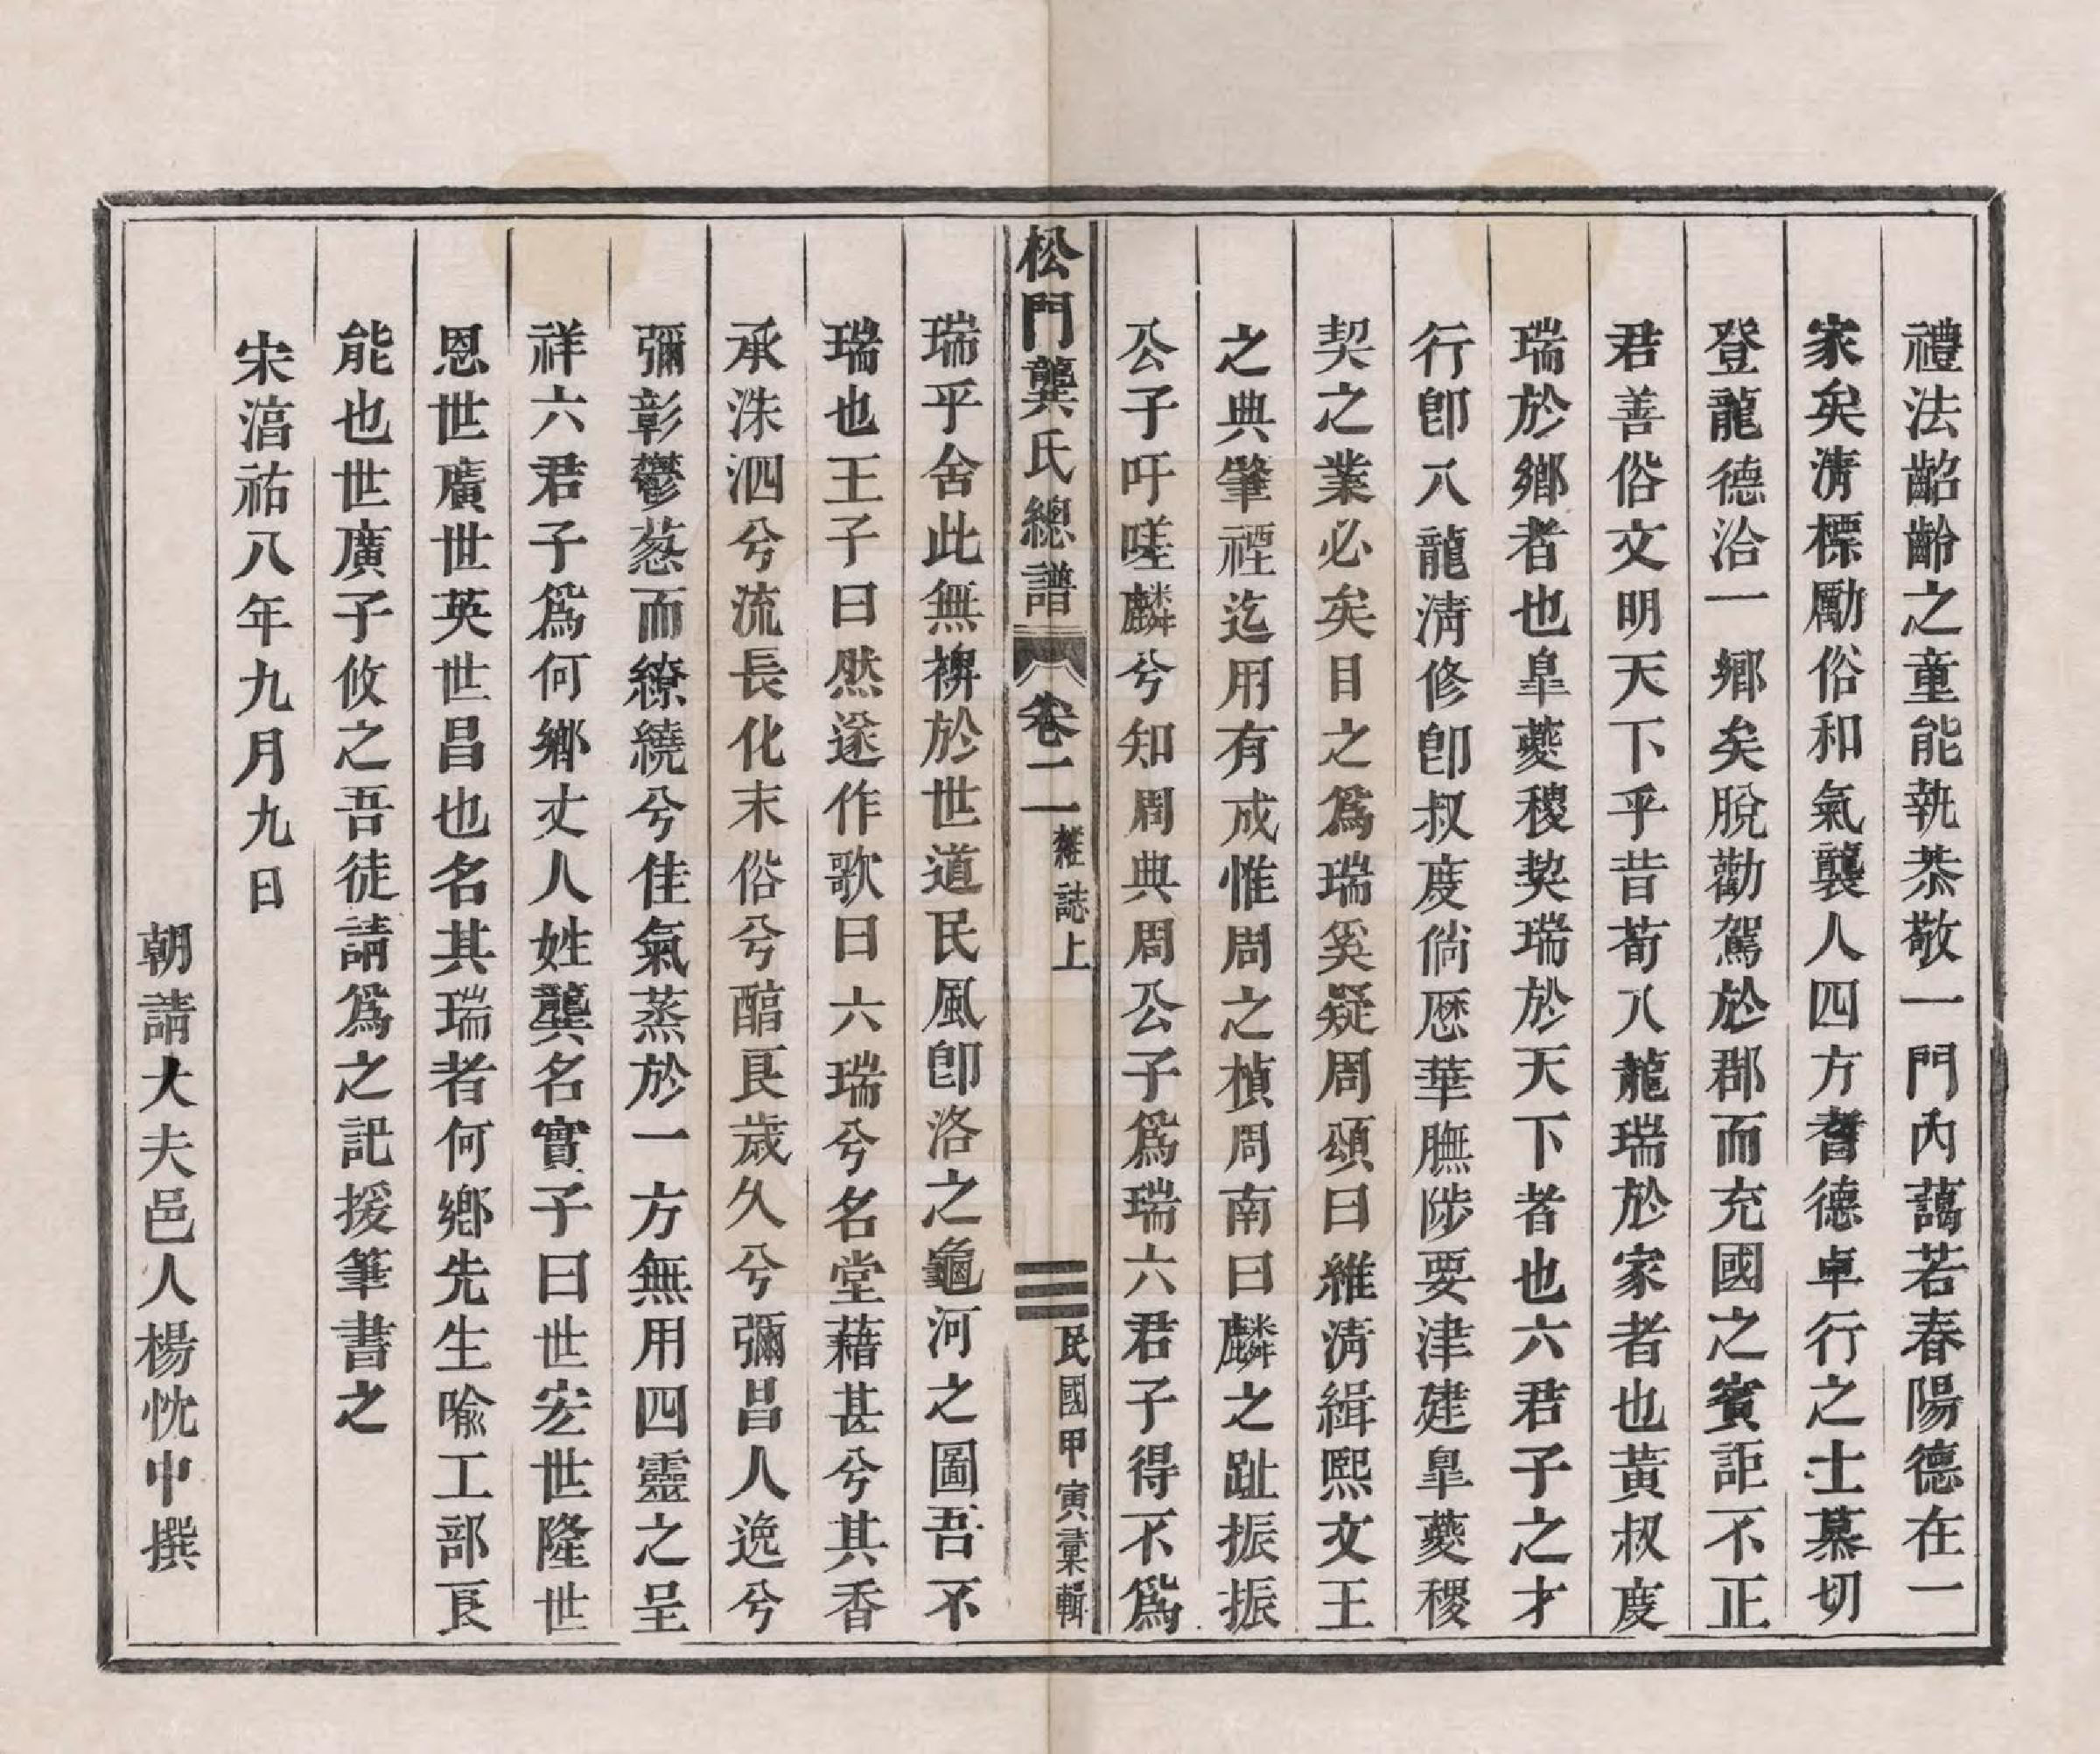 禮法齠齡之童能執恭敬一門內藹若春陽德在一
家矣淸標勵俗和氣襲人四方耆德卓行之士慕切
登龍德洽一鄉矣脫勸駕於郡而充國之賓詎不正
君善俗文明天下乎昔荀八龍瑞於家者也黃叔度
瑞於鄉者也臯夔稷契瑞於天下者也六君子之才
行卽八龍淸修卽叔度倘歷華膴陟要津建臯夔稷
契之業必矣目之爲瑞奚疑周頌曰維淸緝熙文王
之典肇禋迄用有成惟周之楨周南曰麟之趾振振
公子吁嗟麟兮知周典周公子爲瑞六君子得不爲
松門龔氏總譜 卷二 雜誌上 三 民國甲寅彙輯
瑞乎舍此無裨於世道民風卽洛之龜河之圖吾不
瑞也王子曰然遂作歌曰六瑞兮名堂藉甚兮其香
承洙泗兮流長化末俗兮醕良歲久兮彌昌人逸兮
彌彰鬱葱而繚繞兮佳氣蒸於一方無用四靈之呈
祥六君子爲何鄉丈人姓龔名實子曰世宏世隆世
恩世廣世英世昌也名其瑞者何鄉先生喩工部良
能也世廣子攸之吾徒請爲之記援筆書之
宋湻祐八年九月九日
朝請大夫邑人楊忱中撰